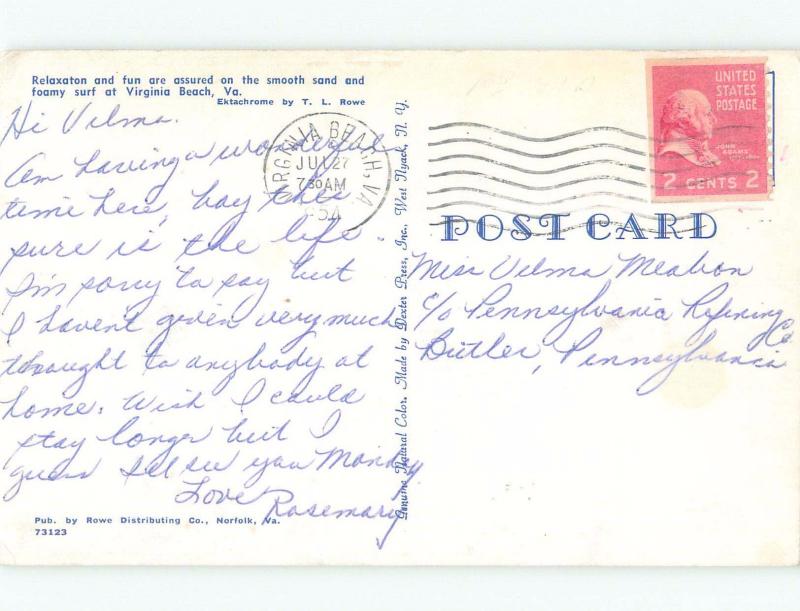 Relaxaton and fun are assured on the smooth sand and
foamy surf at Virginia Beach, Va.
Ektachrome by T. L. Rowe
Hi Velma.
Am having a wonderful
time here, boy this
sure is the life.
I'm sorry to say but
I haven't given very much
thought to anybody at
home. Wish I could
stay longer but I
guess I'll see you Monday
Love
Rosemary
Pub. by Rowe Distributing Co., Norfolk, Va.
73123
Genuine Natural Color. Made by Dexter Press, Inc., West Nyack, N. Y.
VIRGINIA BEACH, VA
JUL 27
7 30 AM
UNITED
STATES
POSTAGE
JOHN
ADAMS
2 CENTS 2
POST CARD
Miss Velma
c/o Pennsylvania Refining
Co
Butler, Pennsylvania